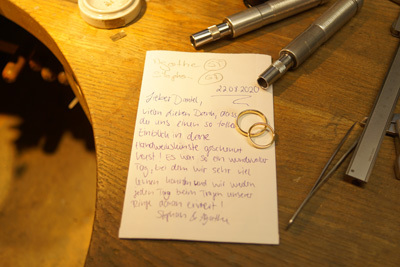 22.08.2020
Lieber Daniel,
vielen lieben Dank, dass
du uns einen so tollen
Einblick in deine
Handwerkskünste geschenkt
hast! Es war so ein wundervoller
Tag, bei dem wir sehr viel
lernen konnten und wir werden
jeden Tag beim Tragen unserer
Ringe daran erinnert!
Stephan &